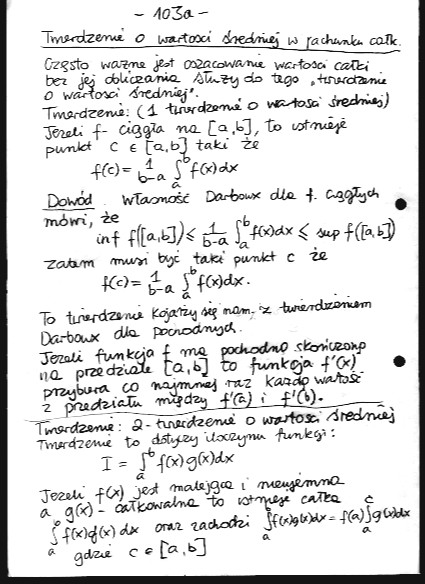 - 103a -
Twierdzenie o wartości średniej w rachunku całk.
Często ważne jest oszacowanie wartości całki
bez jej obliczania służy do tego „twierdzenie
o wartości średniej".
Twierdzenie: (1 twierdzenie o wartości średniej)
Jeżeli f - ciągła na [a,b], to istnieje
punkt c ∈ [a,b] taki że
f(c) = 1/(b-a) ∫_a^b f(x)dx
Dowód. Własność Darboux dla f. ciągłych
mówi, że
inf f([a,b]) ≤ 1/(b-a) ∫_a^b f(x)dx ≤ sup f([a,b])
zatem musi być taki punkt c że
f(c) = 1/(b-a) ∫_a^b f(x)dx.
To twierdzenie kojarzy się nam z twierdzeniem
Darboux dla pochodnych.
Jeżeli funkcja f ma pochodną skończoną
na przedziale [a,b] to funkcja f'(x)
przybiera co najmniej raz każdą wartość
z przedziału między f'(a) i f'(b).
Twierdzenie: 2-twierdzenie o wartości średniej
Twierdzenie to dotyczy iloczynu funkcji:
I = ∫_a^b f(x)g(x)dx
Jeżeli f(x) jest malejąca i nieujemna
a g(x) - całkowalna to istnieje całka
∫_a^b f(x)g(x)dx oraz zachodzi ∫_a^b f(x)g(x)dx = f(a)∫_a^c g(x)dx
gdzie c ∈ [a,b]